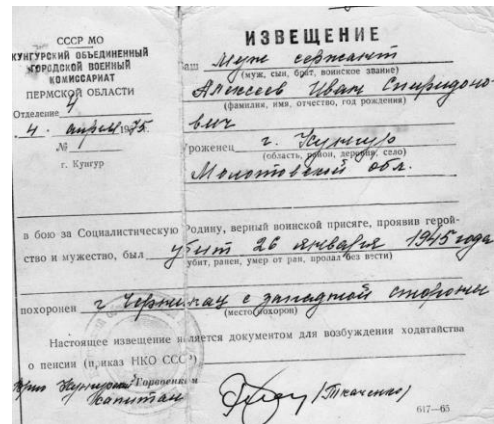 СССР МО
КУНГУРСКИЙ ОБЪЕДИНЕННЫЙ
ГОРОДСКОЙ ВОЕННЫЙ
КОМИССАРИАТ
ПЕРМСКОЙ ОБЛАСТИ
Отделение 4
4. апреля 1975
№
г. Кунгур
ИЗВЕЩЕНИЕ
Ваш муж сержант
(муж, сын, брат, воинское звание)
Алексеев Иван Спиридоно-
(фамилия, имя, отчество, год рождения)
вич
Уроженец г. Кунгур
(область, район, деревня, село)
Молотовской обл.
в бою за Социалистическую Родину, верный воинской присяге, проявив герой-
ство и мужество, был убит 26 января 1945 года
(убит, ранен, умер от ран, пропал без вести)
похоронен г. Черникац с западной стороны
(место похорон)
Настоящее извещение является документом для возбуждения ходатайства
о пенсии (приказ НКО СССР)
Горвоенком
Капитан
(Ткаченко)
617—65